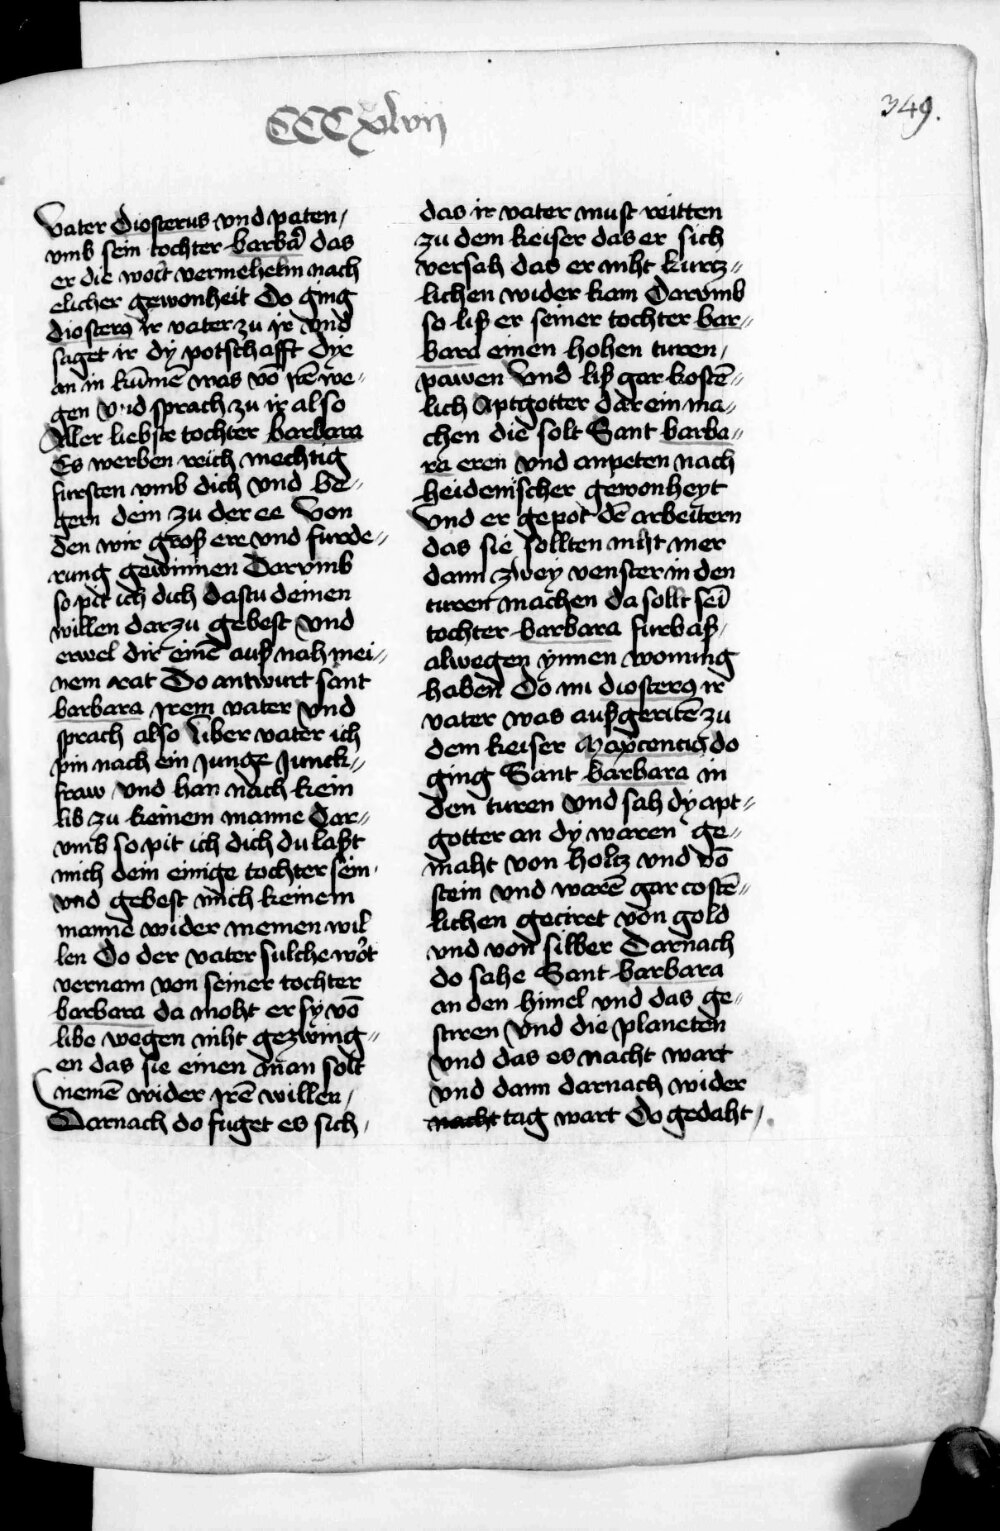 CCCxlvii
349.
Vater diosterus vnd paten/
vmb sein tochter barbãr das
er die wolt vermeheln nach
elicher gewonheit Do ging
diosterꝰ ir vater zu ir vnd
saget ir dy potschafft dye
an in kūmē was vō irē we⸗
gen vnd sprach zu ir also
Aller liebste tochter barbara
Es werben reich mechtig
fursten vmb dich vnd be⸗
gern dein zu der ee Von
den wir groß ere vnd furde⸗
rung gewinnen Darvmb
so pit ich dich dastu deinen
willen darzu gebest vnd
erwel dir einē auß nah mei⸗
nem rat Do antwurt sant
barbara irem vater vnd
sprach also liber vater ich
pin nach ein junge junck⸗
fraw vnd han nach kein
lib zu keinem manne Dar⸗
vmb so pit ich dich du laßt
mich dein einige tochter sein
vnd gebest mich keinem
manne wider meinen wil
len Do der vater sulche wort
vernam von seiner tochter
barbara da moht er sy vō
libe wegen niht gezwing⸗
en das sie einen man solt
nemē wider irē willen/
Darnach do fuget es sich/
das ir vater must reitten
zu dem keiser das er sich
versah das er niht kurtz⸗
lichen wider kam Darvmb
so liß er seiner tochter bar⸗
bara einen hohen turen/
pawen Vnd liß gar kostē⸗
lich Aptgotter dar ein ma⸗
chen die solt Sant barba⸗
ra eren vnd anpeten nach
heidenischer gewonheyt
Vnd er gepot dē arbeitern
das sie sollten niht mer
dann zwey venster in den
turen machen da sollt sei
tochter barbara furbaß/
alwegen ynnen wonung
haben Do nu diosterꝰ ir
vater was außgeritē zu
dem keiser Maxcencio do
ging Sant barbara in
den turen vnd sah dy apt⸗
gotter an dy waren ge⸗
maht von holtz vnd vō
stein vnd warē gar costē⸗
lichen geciret von gold
vnd von silber Darnach
do sahe Sant barbara
an den himel vnd das ge⸗
stiren vnd die planeten
vnd das es nacht wart
vnd dann darnach wider
nacht tag wart Do gedaht/